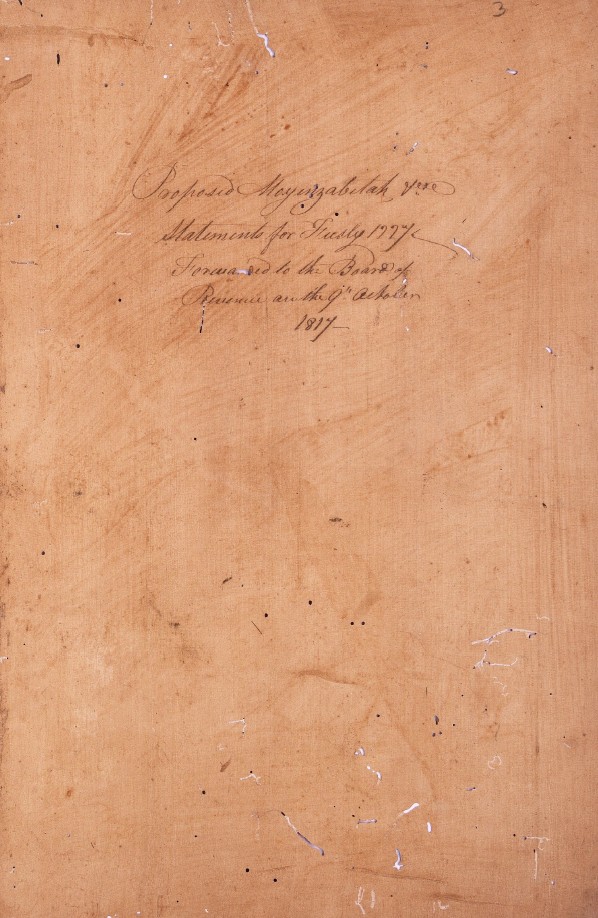 3
Proposed Moyenzabetah &ca
Statements for Fusly 1227
Forwarded to the Board of
Revenue on the 9th October
1817